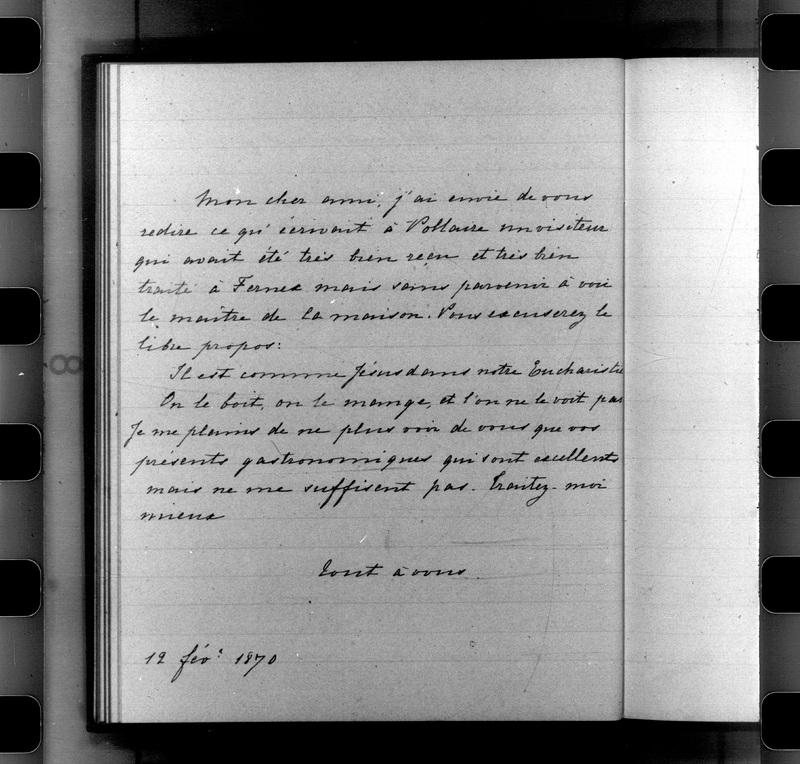 Mon cher ami, j'ai envie de vous
redire ce qu'écrivait à Voltaire un visiteur
qui avait été très bien reçu et très bien
traité à Fernex mais sans parvenir à voir
le maître de la maison. Vous excuserez le
libre propos:
Il est comme Jésus dans notre Eucharistie
On le boit, on le mange, et l'on ne le voit pas
Je me plains de ne plus voir de vous que vos
présents gastronomiques qui sont excellents
mais ne me suffisent pas. Traitez-moi
mieux
Tout à vous.
12 fév. 1870